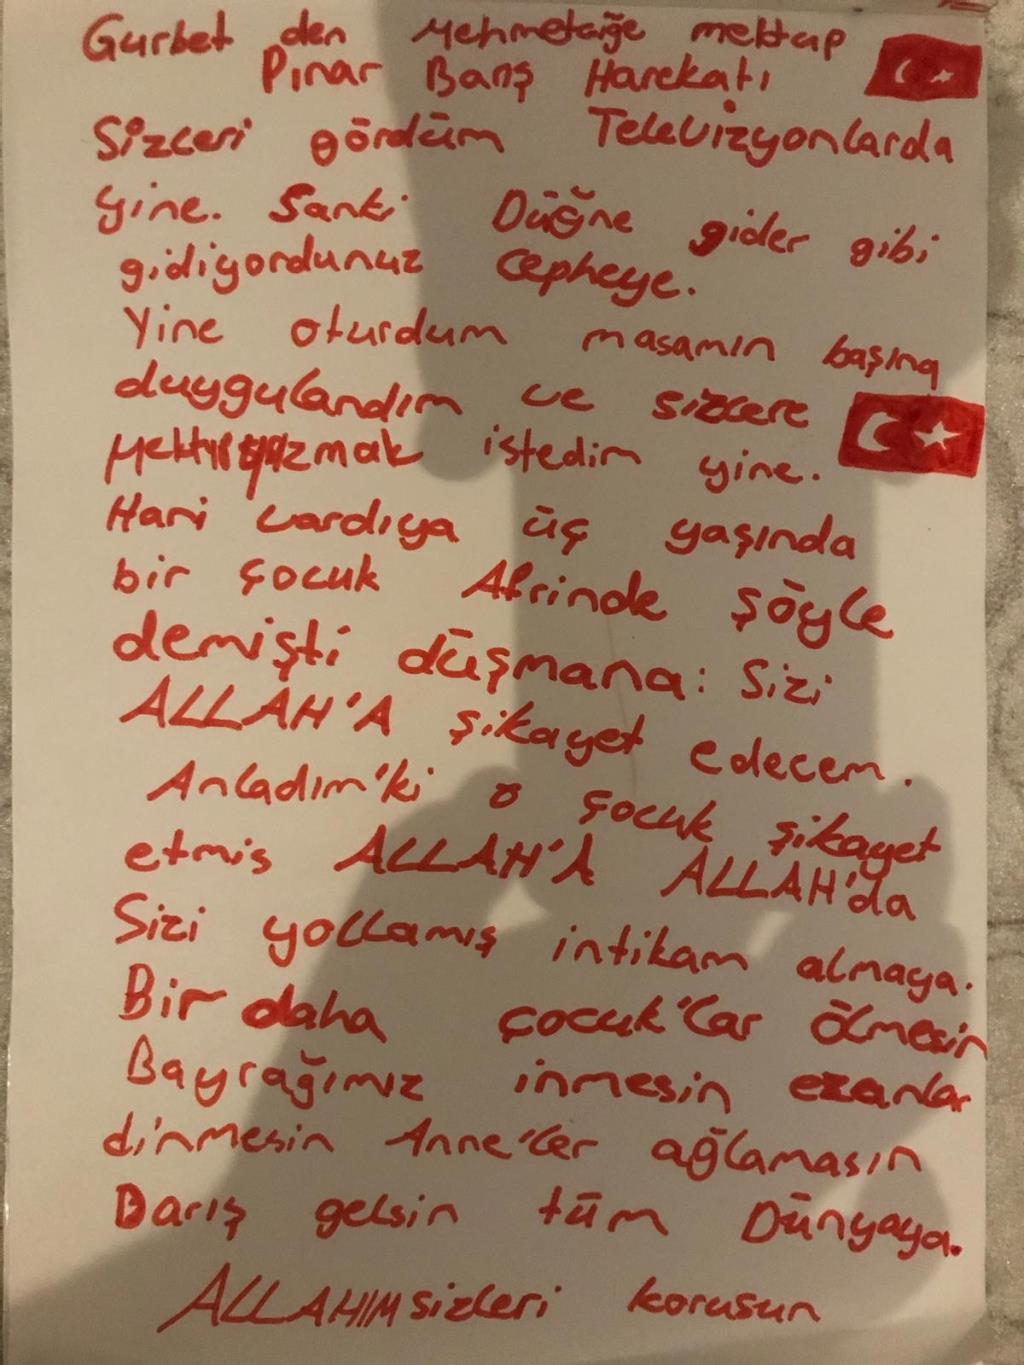 Gurbet den Mehmetciğe mektup
Pınar Barış Harekatı
Sizleri gördüm Televizyonlarda
yine. Sanki Düğne gider gibi
gidiyordunuz Cepheye.
Yine oturdum masamın başına
duygulandım ve sizlere
Mektup yazmak istedim yine.
Hani vardıya üç yaşında
bir çocuk Afrinde şöyle
demişti düşmana: Sizi
ALLAH'A şikayet edecem.
Anladım'ki o çocuk şikayet
etmis ALLAH'A ALLAH'da
Sizi yollamış intikam almaya.
Bir daha çocuk'lar ölmesin
Bayrağımız inmesin ezanlar
dinmesin Anne'ler ağlamasın
Barış gelsin tüm Dünyaya.
ALLAHIM sizleri korusun